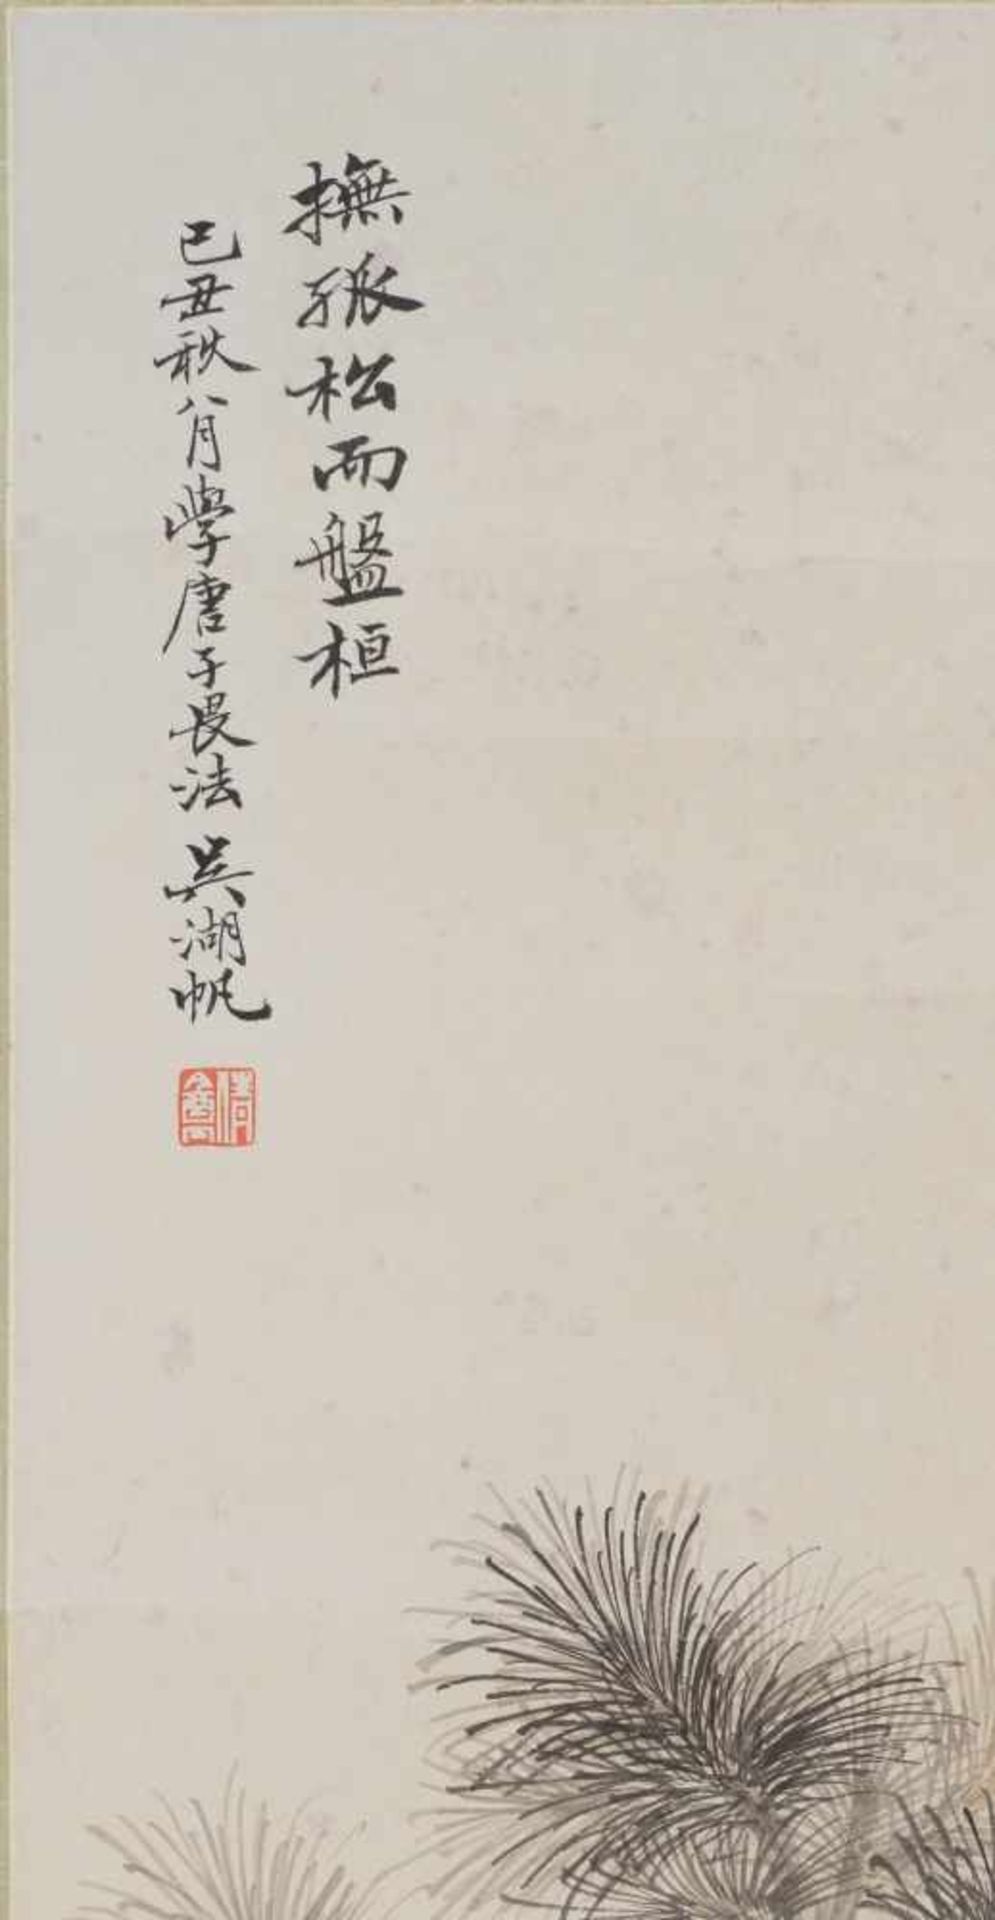 撫孤松而盤桓
己丑秋八月學唐子畏法吳湖帆